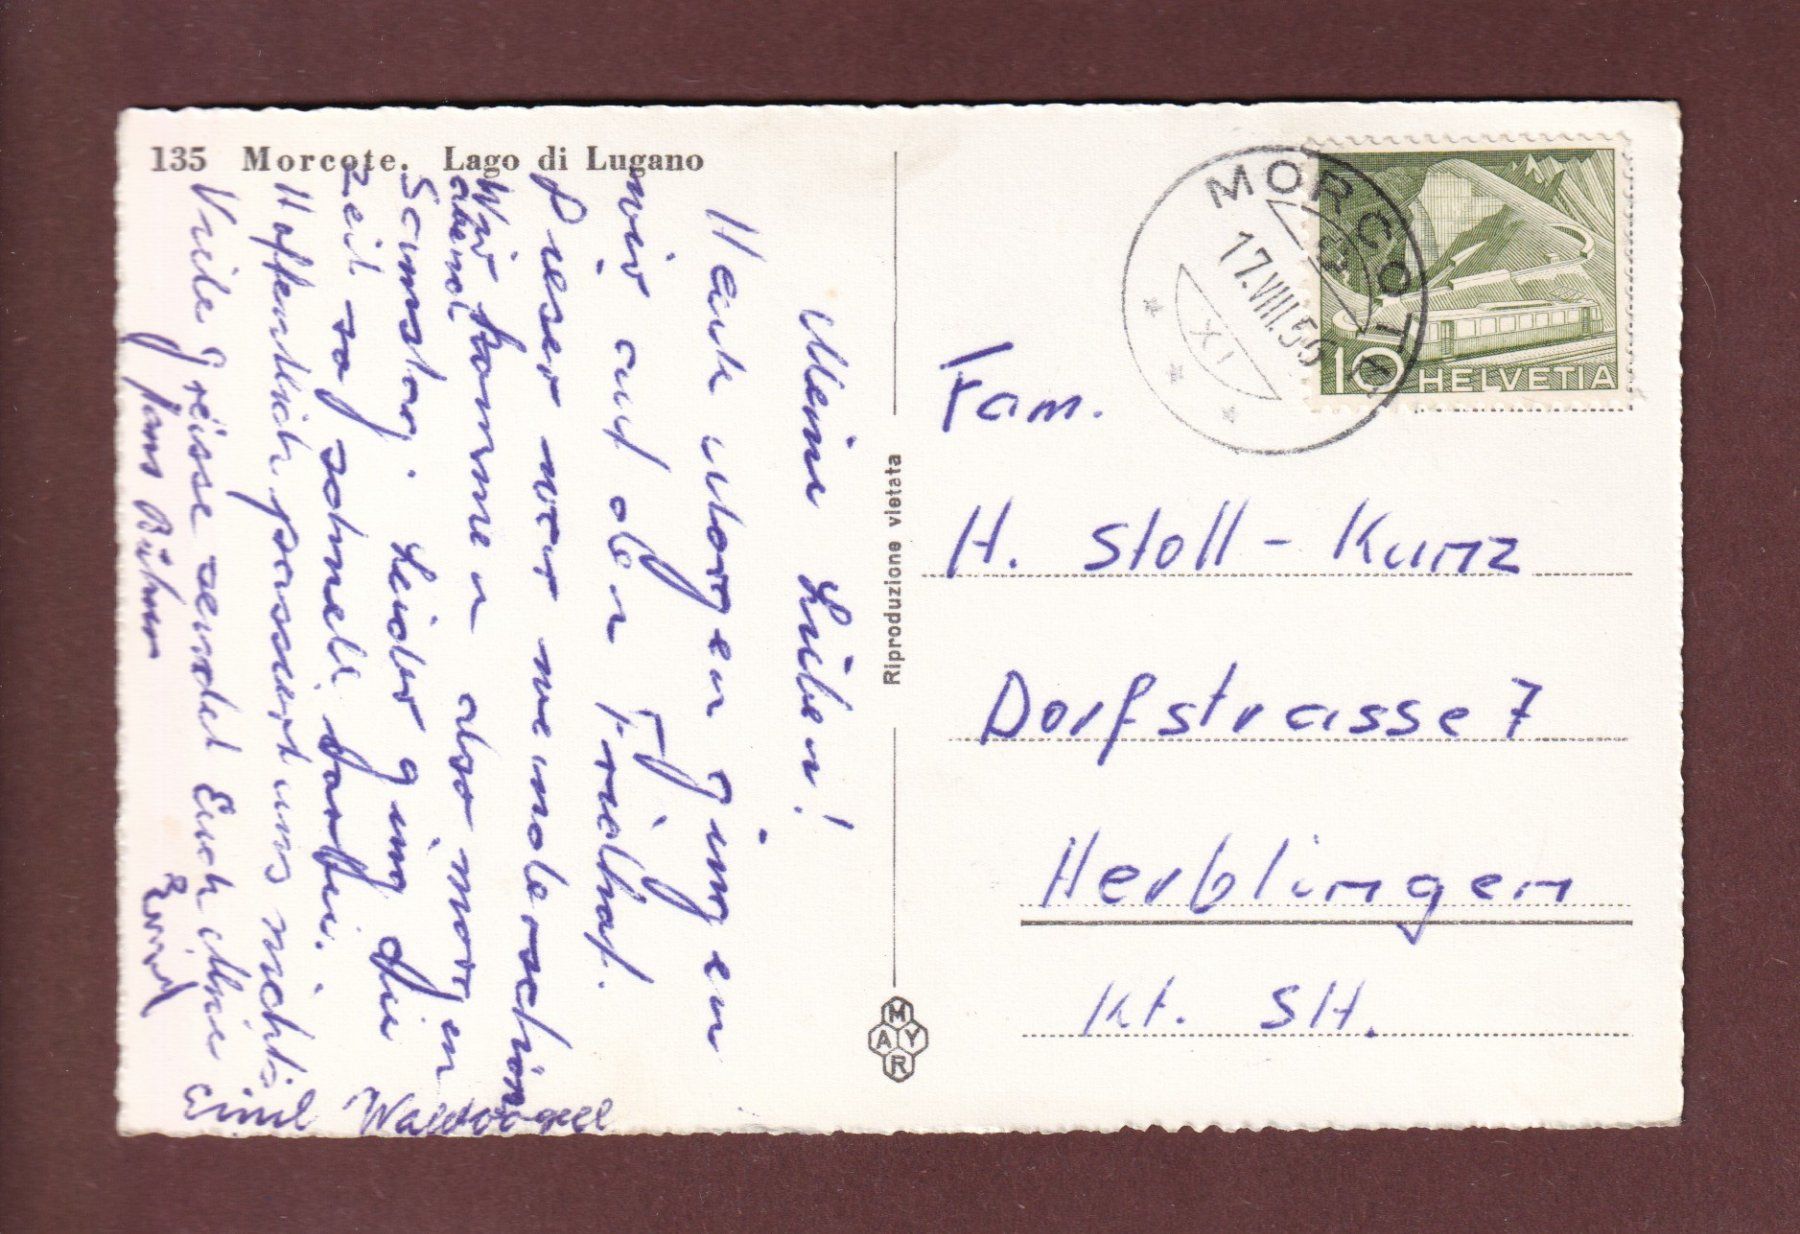 135 Morcote. Lago di Lugano
Meine Lieben!
Heute Morgen gingen
wir auf den Friedhof.
Dieser war wunderschön
Wir kommen also morgen
abend
Samstag. Leider ging die
Zeit so schnell vorbei.
Hoffentlich passiert uns nichts
Viele Grüsse sendet Euch
Hans Bührer
Emil Waldvogel
Riproduzione vietata
MAYR
MORCOTE
17.VIII.56
XI
10 HELVETIA
Fam.
H. Stoll-Kunz
Dorfstrasse 7
Herblingen
Kt. SH.